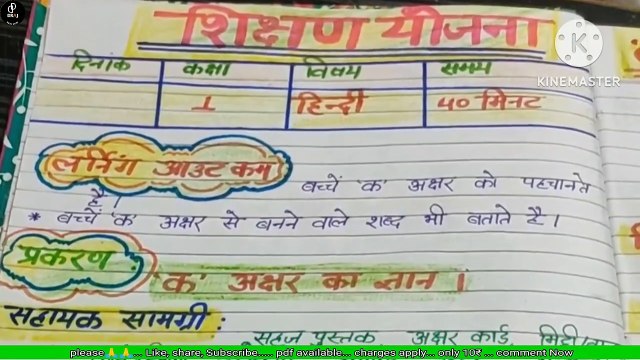 शिक्षण योजना
KINEMASTER
दिनांक कक्षा विषय समय
1 हिन्दी 40 मिनट
लर्निंग आउट कम
बच्चें 'क' अक्षर को पहचानते
है।
* बच्चें 'क' अक्षर से बनने वाले शब्द भी बताते है।
प्रकरण :
'क' अक्षर का ज्ञान ।
सहायक सामग्री :
सहज पुस्तक, अक्षर कार्ड, मिट्टी
please 🙏🙏... Like, share, Subscribe..... pdf available... charges apply... only 10₹ ... comment Now